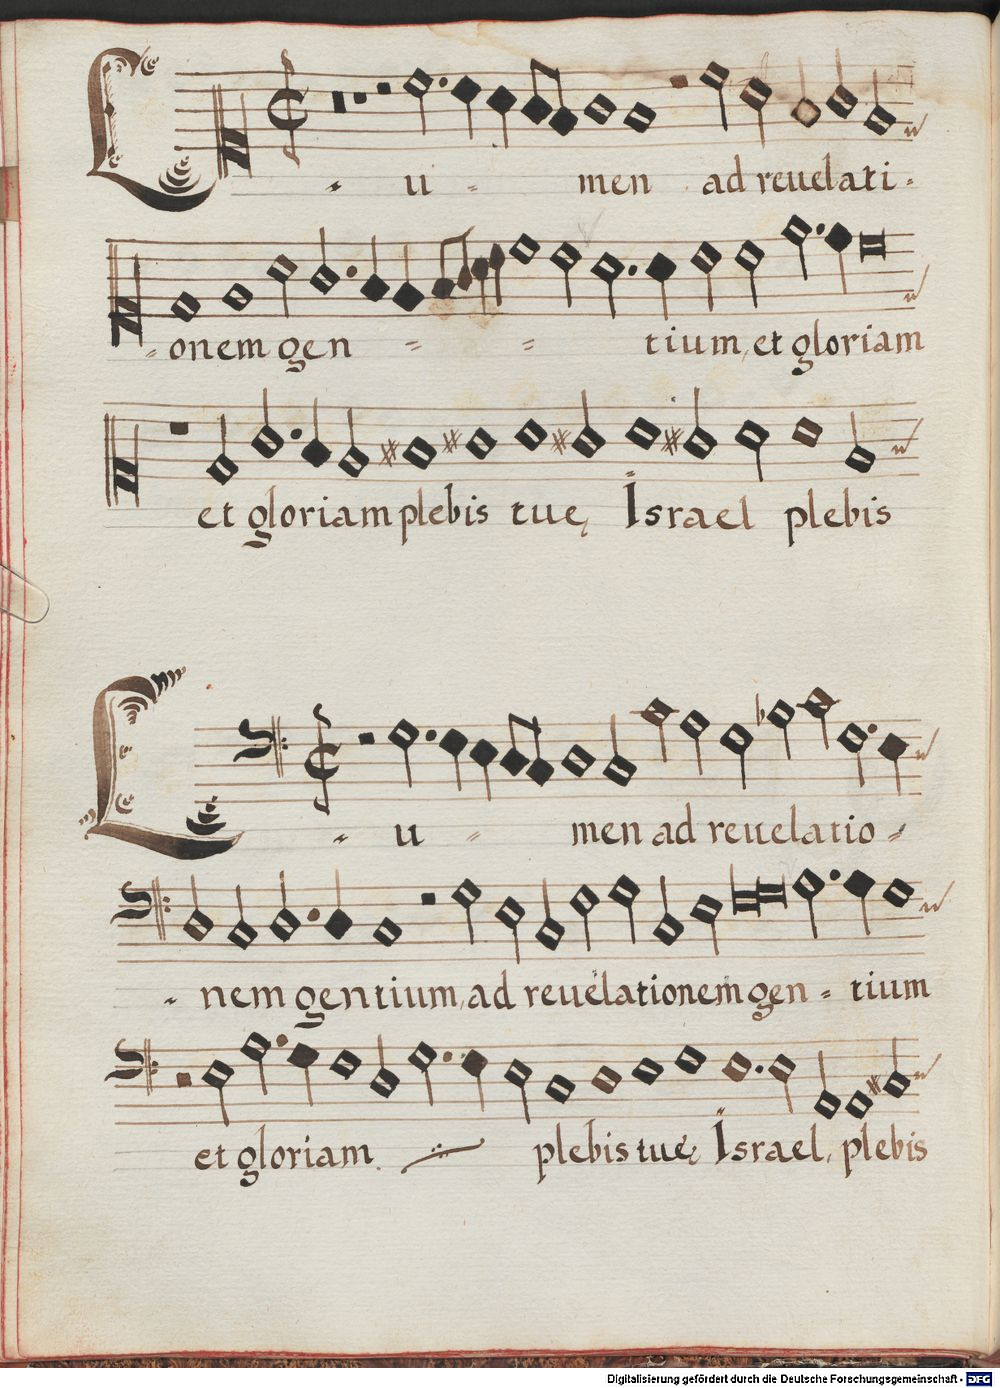 Lu - men ad reuelati -
- onem gen - - tium, et gloriam
et gloriam plebis tuę Israel plebis
Lu - men ad reuelatio -
- nem gentium, ad reuelationem gen - tium
et gloriam plebis tuę Israel, plebis
Digitalisierung gefördert durch die Deutsche Forschungsgemeinschaft - DFG